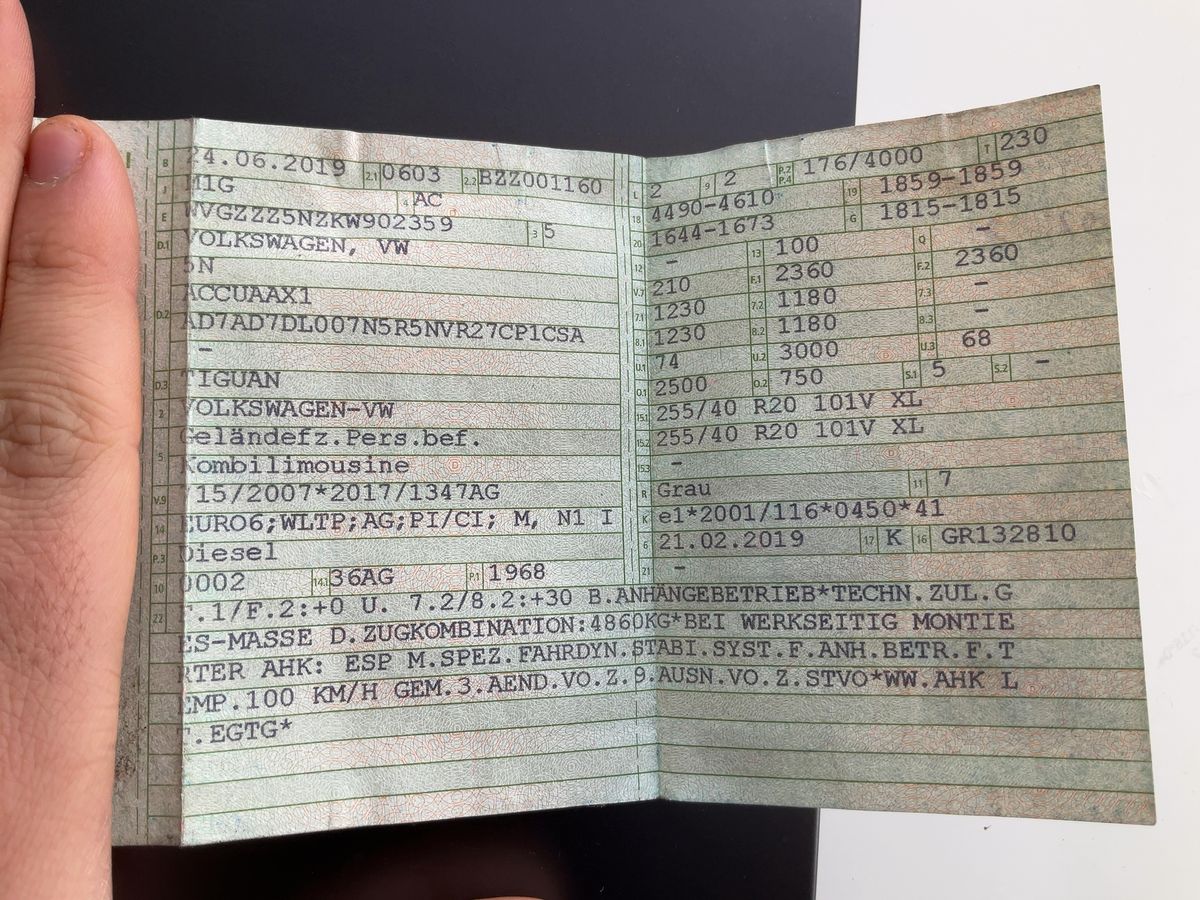 B 24.06.2019 2.1 0603 2.2 BZZ001160
J M1G 4 AC
E WVGZZZ5NZKW902359 3 5
D.1 VOLKSWAGEN, VW
5N
D.2 ACCUAAX1
AD7AD7DL007N5R5NVR27CP1CSA
-
D.3 TIGUAN
2 VOLKSWAGEN-VW
5 Geländefz.Pers.bef.
Kombilimousine
V.9 715/2007*2017/1347AG
14 EURO6;WLTP;AG;PI/CI; M, N1 I
P.3 Diesel
10 0002 14.1 36AG P.1 1968
L 2 9 2 P.2 P.4 176/4000 T 230
18 4490-4610 19 1859-1859
20 1644-1673 G 1815-1815
12 - 13 100 Q -
V.7 210 F.1 2360 F.2 2360
7.1 1230 7.2 1180 7.3 -
8.1 1230 8.2 1180 8.3 -
U.1 74 U.2 3000 U.3 68
O.1 2500 O.2 750 S.1 5 S.2 -
15.1 255/40 R20 101V XL
15.2 255/40 R20 101V XL
15.3 -
R Grau 11 7
K e1*2001/116*0450*41
6 21.02.2019 17 K 16 GR132810
21 -
22 F.1/F.2:+0 U. 7.2/8.2:+30 B.ANHÄNGEBETRIEB*TECHN.ZUL.G
ES-MASSE D.ZUGKOMBINATION:4860KG*BEI WERKSEITIG MONTIE
RTER AHK: ESP M.SPEZ.FAHRDYN.STABI.SYST.F.ANH.BETR.F.T
EMP.100 KM/H GEM.3.AEND.VO.Z.9.AUSN.VO.Z.STVO*WW.AHK L
T.EGTG*